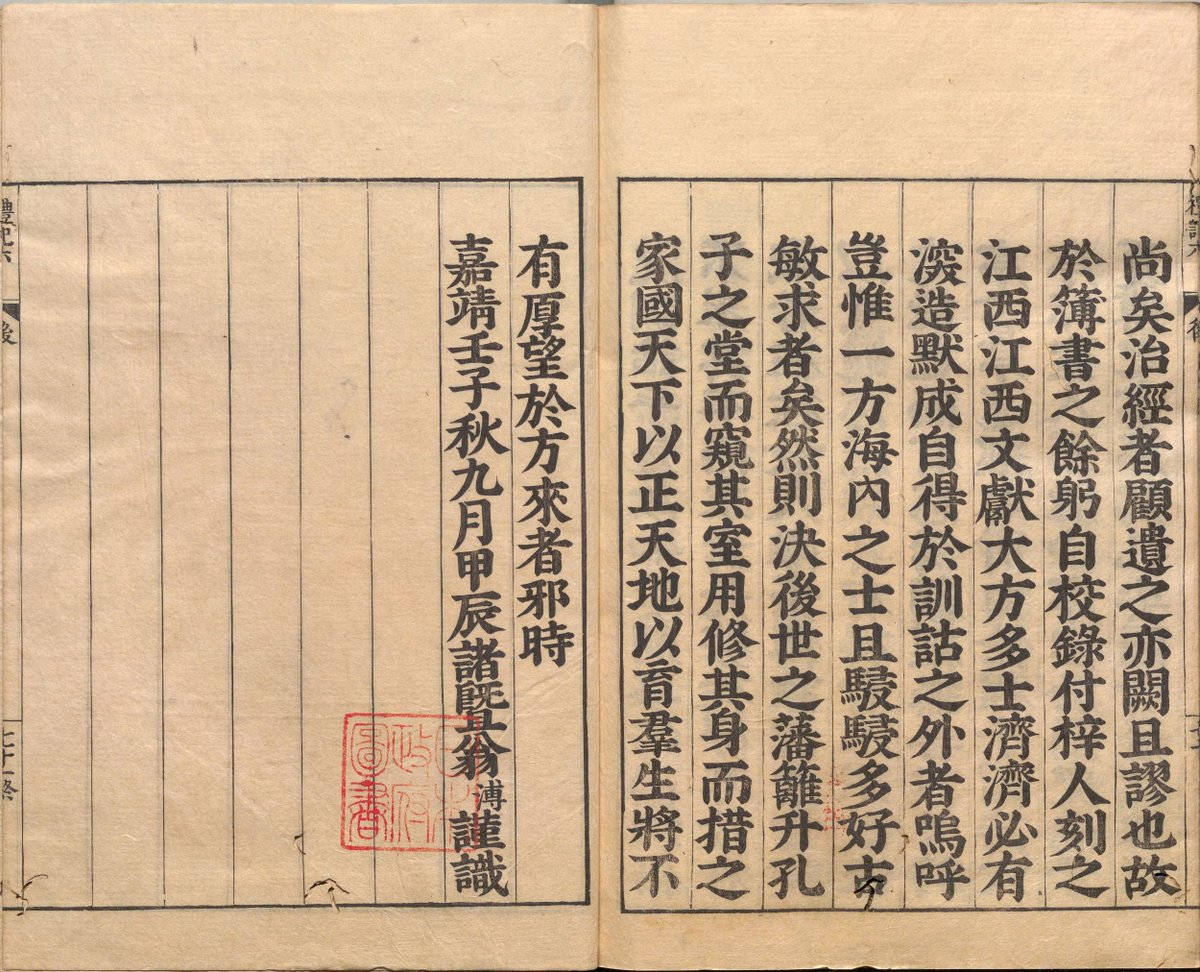 尚矣治經者顧遺之亦闕且謬也故
於簿書之餘躬自校錄付梓人刻之
江西江西文獻大方多士濟濟必有
深造默成自得於訓詁之外者嗚呼
豈惟一方海內之士且駸駸多好古
敏求者矣然則決後世之藩籬升孔
子之堂而窺其室用修其身而措之
家國天下以正天地以育羣生將不
有厚望於方來者邪時
嘉靖壬子秋九月甲辰諸曁翁溥謹識
禮記六
後